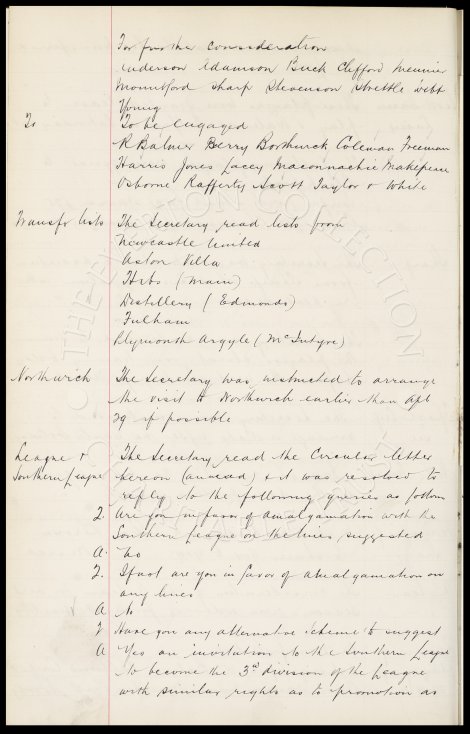 For further consideration
Anderson Adamson Buck Clifford Meunier
Mountford Sharp Stevenson Strettle Webb
Young
To
To be engaged
R Balmer Berry Borthwick Coleman Freeman
Harris Jones Lacey Maconnachie Makepeace
Osborne Rafferty Scott Taylor & White
Transfer lists
The Secretary read lists from
Newcastle United
Aston Villa
Hibs (Main)
Distillery (Edmonds)
Fulham
Plymouth Argyle (McIntyre)
Northwich
The Secretary was instructed to arrange
the visit to Northwich earlier than Apl
29 if possible
League &
Southern League
The Secretary read the Circular letter
hereon (annexed) & it was resolved to
reply to the following queries as follows
Q. Are you in favor of amalgamation with the
Southern League on the lines suggested
A. No
Q. If not are you in favor of amalgamation on
any lines
A No
Q Have you any alternative scheme to suggest
A Yes an invitation to the Southern League
to become the 3rd division of the League
with similar rights as to promotion as
THE EVERTON COLLECTION